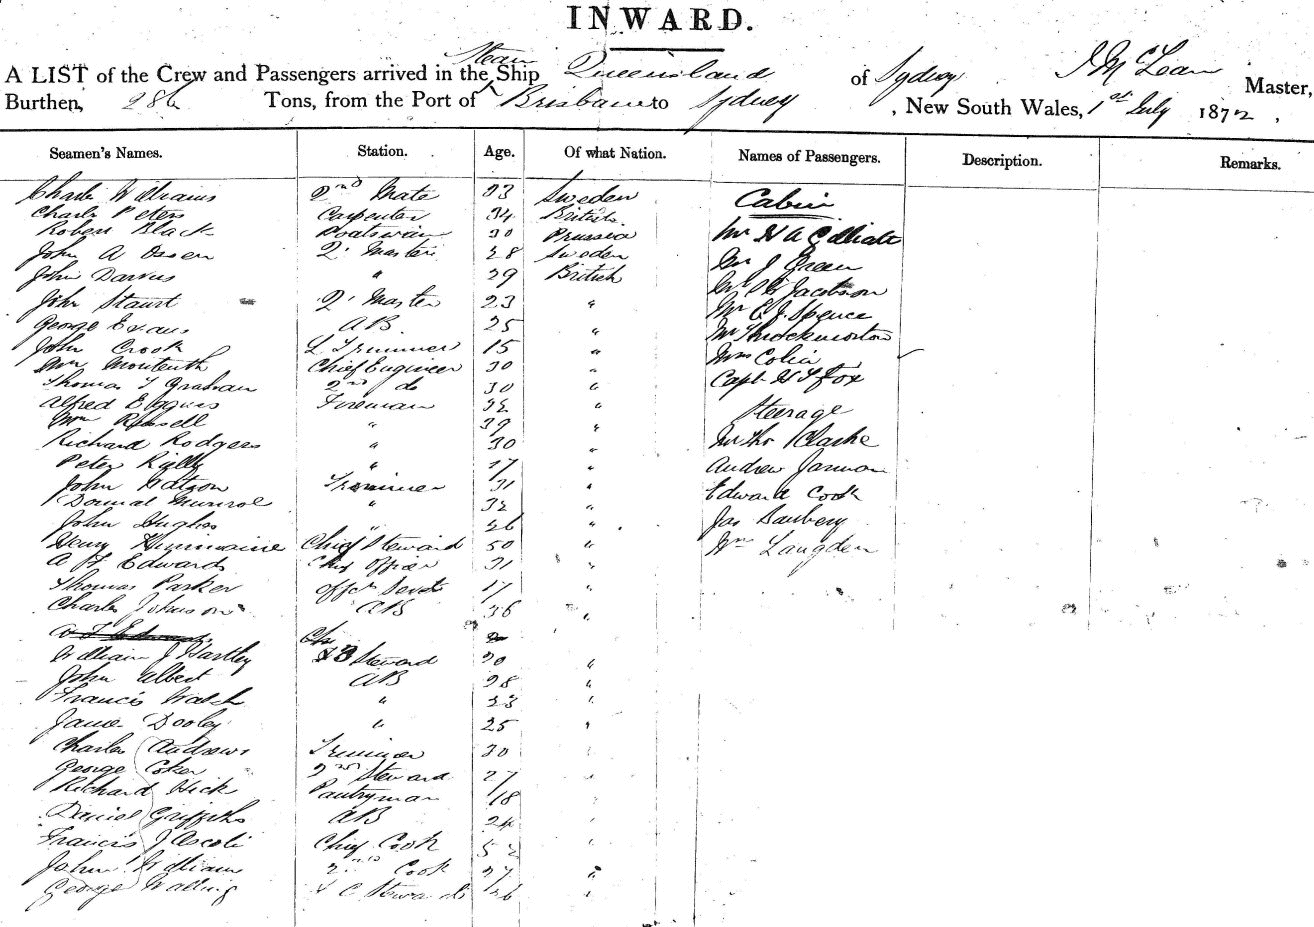 INWARD.
A LIST of the Crew and Passengers arrived in the Steam Ship Queensland of Sydney J McLean Master,
Burthen, 286 Tons, from the Port of Brisbane to Sydney, New South Wales, 1st July 1872,
Seamen's Names. Station. Age. Of what Nation. Names of Passengers. Description. Remarks.
Charles Williams 2nd Mate 33 Sweden Cabin
Charles Peters Carpenter 34 British
Robert Black Boatswain 30 Prussia
John A 2. Master 28 Sweden
John " 29 British Mr J Green
John Q. Master 23 " Jacobson
George Evans AB 25 " Mr C J. Spence
John Crook Trimmer 15 " Mr Throckmorton
Wm Monteith Chief Engineer 30 "
Thomas T Graham 2nd do 30 " Capt H T Fox
Alfred Fireman 32 " Steerage
Wm Russell " 39 "
Richard Rodgers " 30 " Mr Tho Clarke
Peter " 17 " Andrew Jarman
John Watson Trimmer 31 "
Munroe " 32 " Edward Cook
John Hughes " 26 " Jas
Henry Chief Steward 50 " Wm Langden
A F Edwards Chief Officer 31 "
Thomas Parker Offcrs Servt 17 "
Charles Johnson AB 36 "
William J Hartley Steward 20 "
John Albert AB 28 "
Francis Walsh " 23 "
James Dooley " 25 "
Charles Andrews Trimmer 30 "
George Coker 2nd Steward 27 "
Richard Hick Pantryman 18 "
Daniel Griffiths AB 24 "
Francis J Ascoli Chief Cook 52 "
John Williams 2nd Cook 27 "
George Walling 26 "